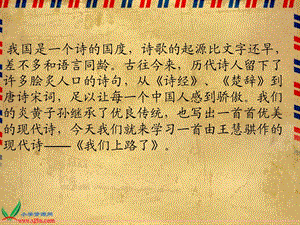 我国是一个诗的国度，诗歌的起源比文字还早，
差不多和语言同龄。古往今来，历代诗人留下了
许多脍炙人口的诗句，从《诗经》、《楚辞》到
唐诗宋词，足以让每一个中国人感到骄傲。我们
的炎黄子孙继承了优良传统，也写出一首首优美
的现代诗，今天我们就来学习一首由王慧骐作的
现代诗——《我们上路了》。